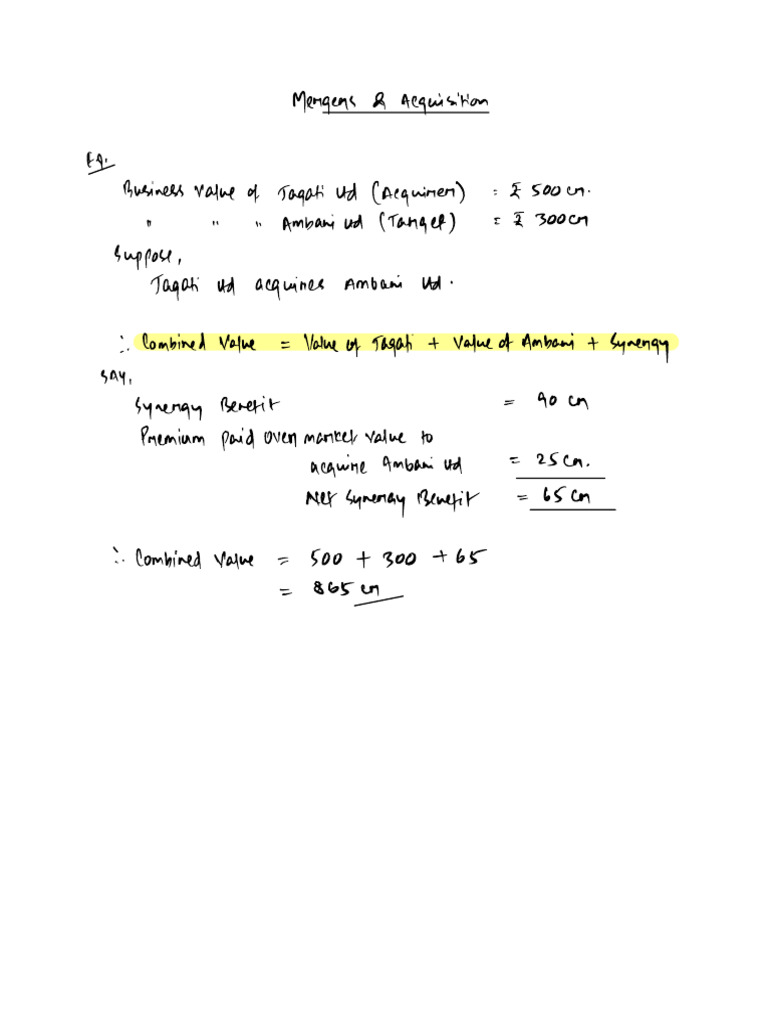 Mergers & Acquisition
Eg.
Business value of Tagati Ltd (Acquirer) = ₹ 500 cr.
" " " Ambani Ltd (Target) = ₹ 300 cr
Suppose,
Tagati Ltd acquires Ambani Ltd.
∴ Combined Value = Value of Tagati + Value of Ambani + Synergy
SAY,
Synergy Benefit = 90 cr
Premium paid over market value to
acquire Ambani Ltd = 25 cr.
Net Synergy Benefit = 65 cr
∴ Combined Value = 500 + 300 + 65
= 865 cr